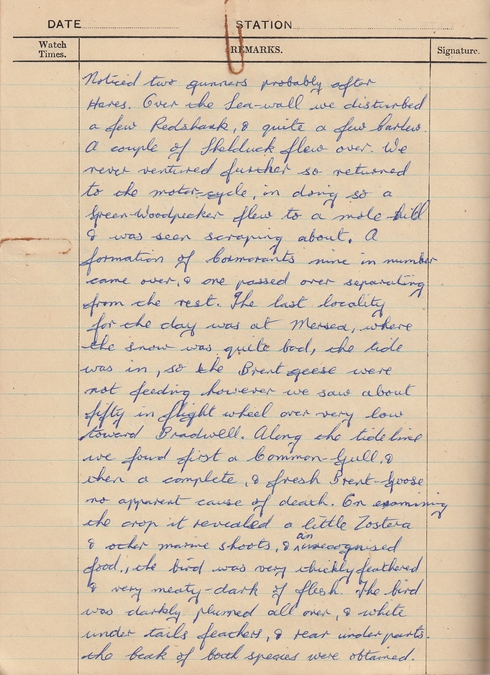 DATE STATION
Watch Times. REMARKS. Signature.
Noticed two gunners probably after
Hares. Over the Sea-wall we disturbed
a few Redshank, & quite a few Curlew.
A couple of Shelduck flew over. We
never ventured further so returned
to the motor-cycle, in doing so a
Green-Woodpecker flew to a mole hill
& was seen scraping about. A
formation of Cormorants nine in number
came over, & one passed over separating
from the rest. The last locality
for the day was at Mersea, where
the snow was quite bad, the tide
was in, so the Brent geese were
not feeding however we saw about
fifty in flight wheel over very low
toward Bradwell. Along the tide line
we found first a Common-Gull, &
then a complete, & fresh Brent-Goose
no apparent cause of death. On examining
the crop it revealed a little Zostera
& other marine shoots, & an unrecognised
food., the bird was very thickly feathered
& very meaty-dark of flesh. The bird
was darkly plumed all over, & white
under tails feathers, & rear underparts.
the beak of both species were obtained.